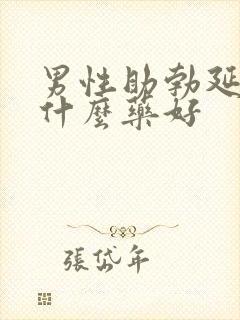 男性助勃延
什麼藥好
張岱年